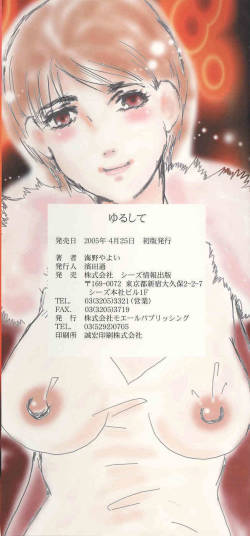 ゆるして
発売日 2005年4月25日 初版発行
著者 海野やよい
発行人 濱田通
発売 株式会社 シーズ情報出版
〒169-0072 東京都新宿区大久保2-2-7
シーズ本社ビル1F
TEL. 03(3205)3321(営業)
FAX. 03(3205)3719
発行 株式会社モエールパブリッシング
TEL. 03(5292)0705
印刷所 誠宏印刷株式会社